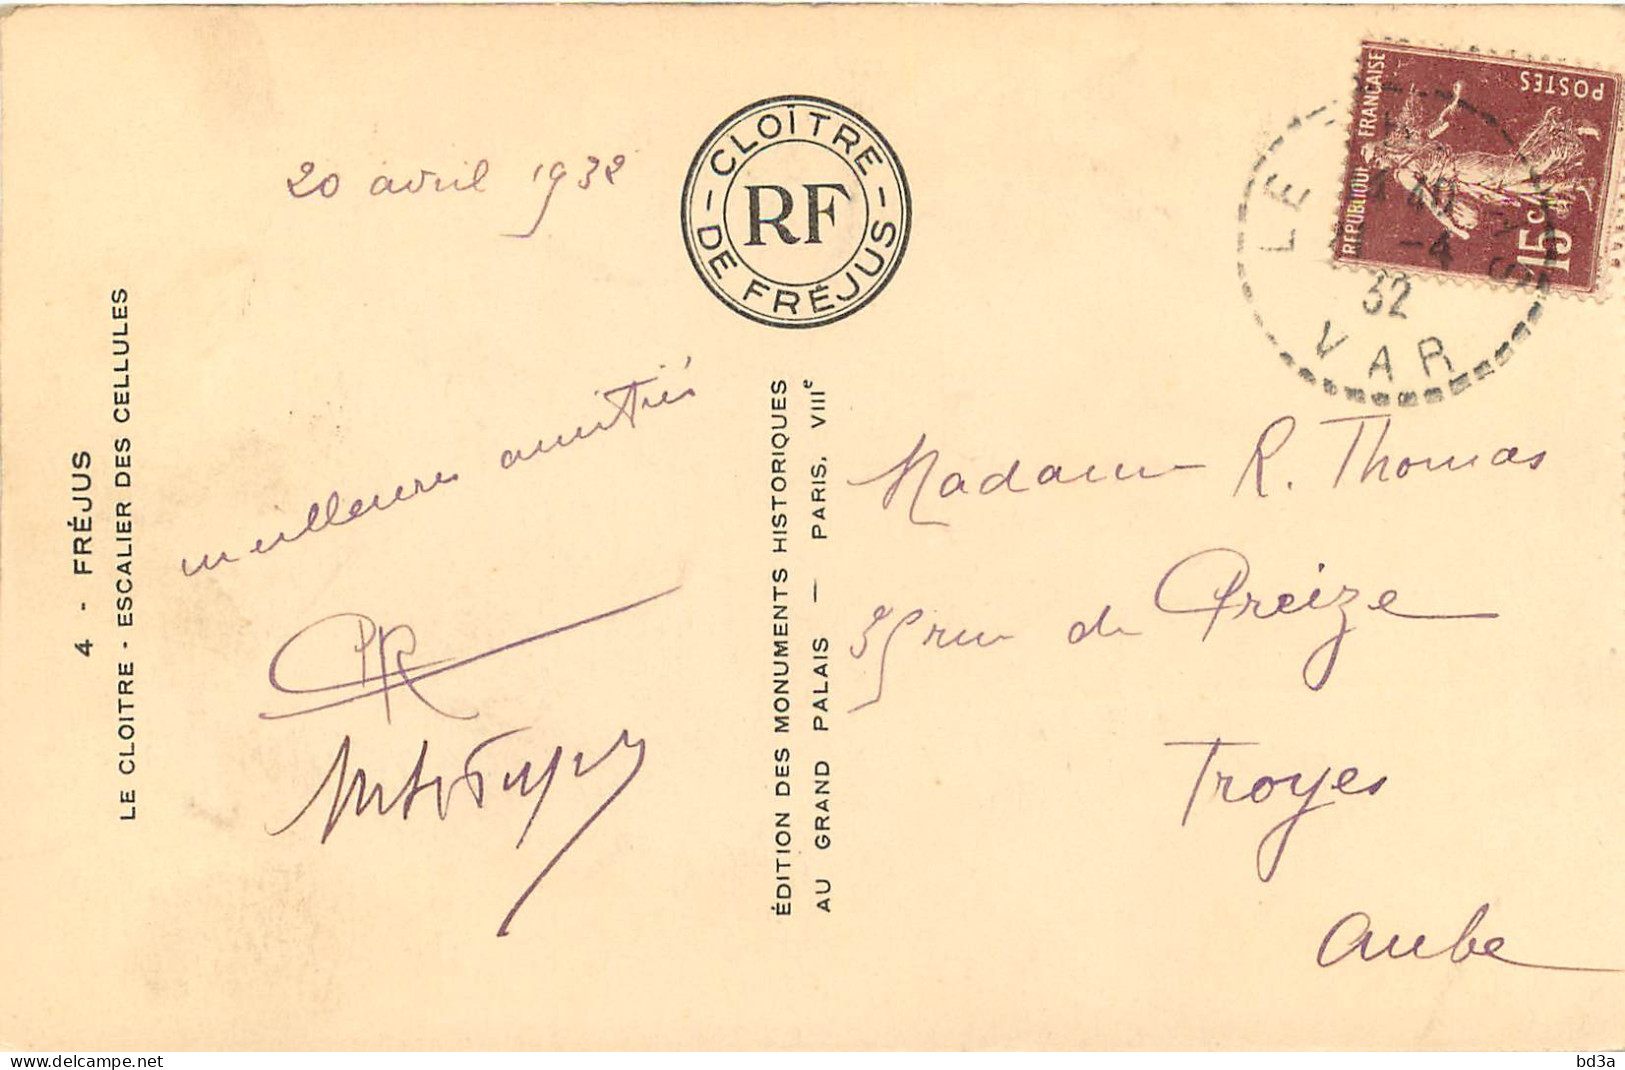 4 - FRÉJUS
LE CLOITRE - ESCALIER DES CELLULES
20 avril 1932
meilleures amitiés
PR
CLOÎTRE
DE FRÉJUS
RF
ÉDITION DES MONUMENTS HISTORIQUES
AU GRAND PALAIS — PARIS, VIIIᵉ
RÉPUBLIQUE FRANÇAISE
POSTES
15c
LE
-4
32
VAR
Madame R. Thomas
35 rue de Preize
Troyes
Aube
delcampe.net
bd3a